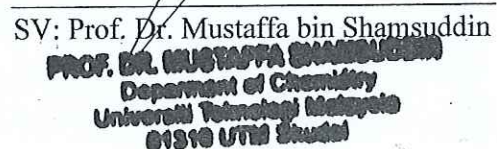 SV: Prof. Dr. Mustaffa bin Shamsuddin
PROF. DR. MUSTAFFA SHAMSUDDIN
Department of Chemistry
Universiti Teknologi Malaysia
81310 UTM Skudai